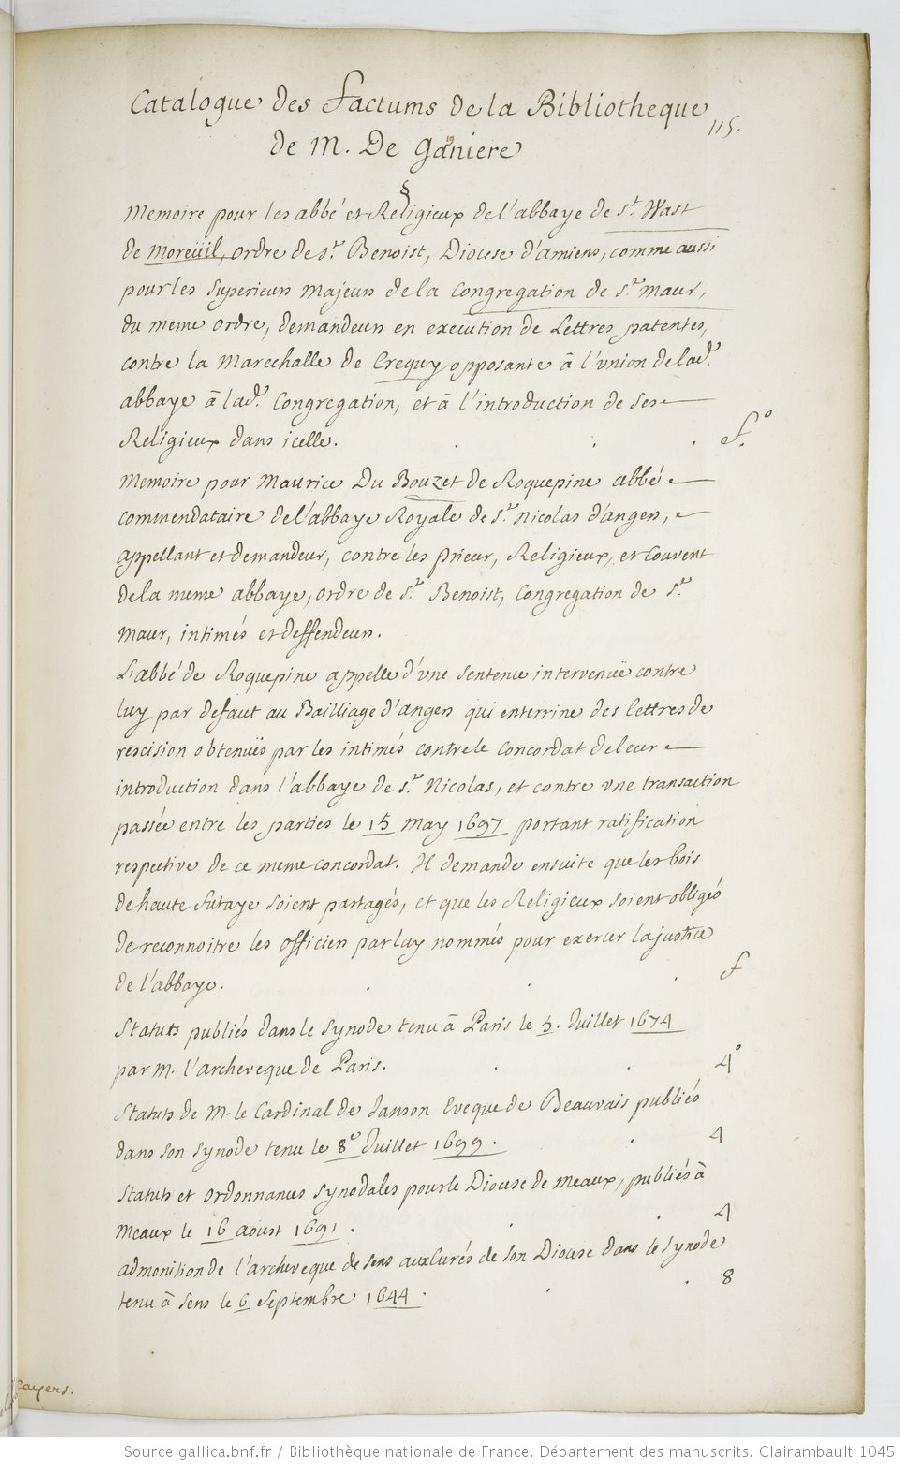 Catalogue des factums de la Bibliotheque
115.
de M. De Ganiere
§
Memoire pour les abbé et Religieux de l'abbaye de St. Wast
de Moreüil, ordre de St. Benoist, Diocese d'amiens, comme aussi
pour les superieurs majeurs de la Congregation de St. Maur,
du meme ordre, demandeurs en execution de Lettres patentes,
contre la Marechalle de Crequy opposante à l'union de lad.
abbaye à lad. Congregation, et à l'introduction de ses
Religieux dans icelle. f.°
Memoire pour Maurice Du Bouzet de Roquepine abbé
commendataire de l'abbaye Royale de St. Nicolas d'angers,
appellant et demandeur, contre les prieur, Religieux, et Couvent
de la meme abbaye, ordre de St. Benoist, Congregation de St.
Maur, intimés et deffendeurs.
L'abbé de Roquepine appelle d'vne sentence intervenüe contre
luy par defaut au Bailliage d'angers qui enterrine des lettres de
rescision obtenües par les intimés contre le concordat de leur
introduction dans l'abbaye de St. Nicolas, et contre vne transaction
passée entre les parties le 15 May 1697 portant ratification
respective de ce meme concordat. Il demande ensuite que les bois
de haute futaye soient partagés, et que les Religieux soient obligés
de reconnoitre les officiers par luy nommés pour exercer la justice
de l'abbaye. f
Statuts publiés dans le synode tenu à Paris le 5. Juillet 1674
par M. l'archeveque de Paris. 4°
Statuts de M. le Cardinal de Janson Eveque de Beauvais publiés
dans son synode tenu le 8e Juillet 1699. 4
Statuts et ordonnances synodales pour le Diocese de Meaux, publiés à
Meaux le 16 aoust 1691. 4
admonition de l'archeveque de sens aux curés de son Diocese dans le synode
tenu à sens le 6 septembre 1644. 8
cayers.
Source gallica.bnf.fr / Bibliothèque nationale de France. Département des manuscrits. Clairambault 1045